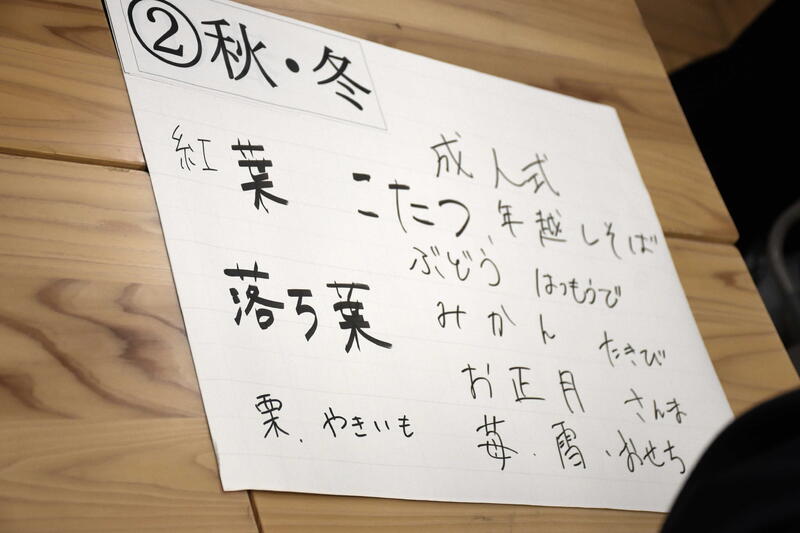 ②秋・冬
紅葉
こたつ
落ち葉
栗、やきいも
成人式
年越しそば
ぶどう
はつもうで
みかん
たきび
お正月
さんま
苺・雪・おせち